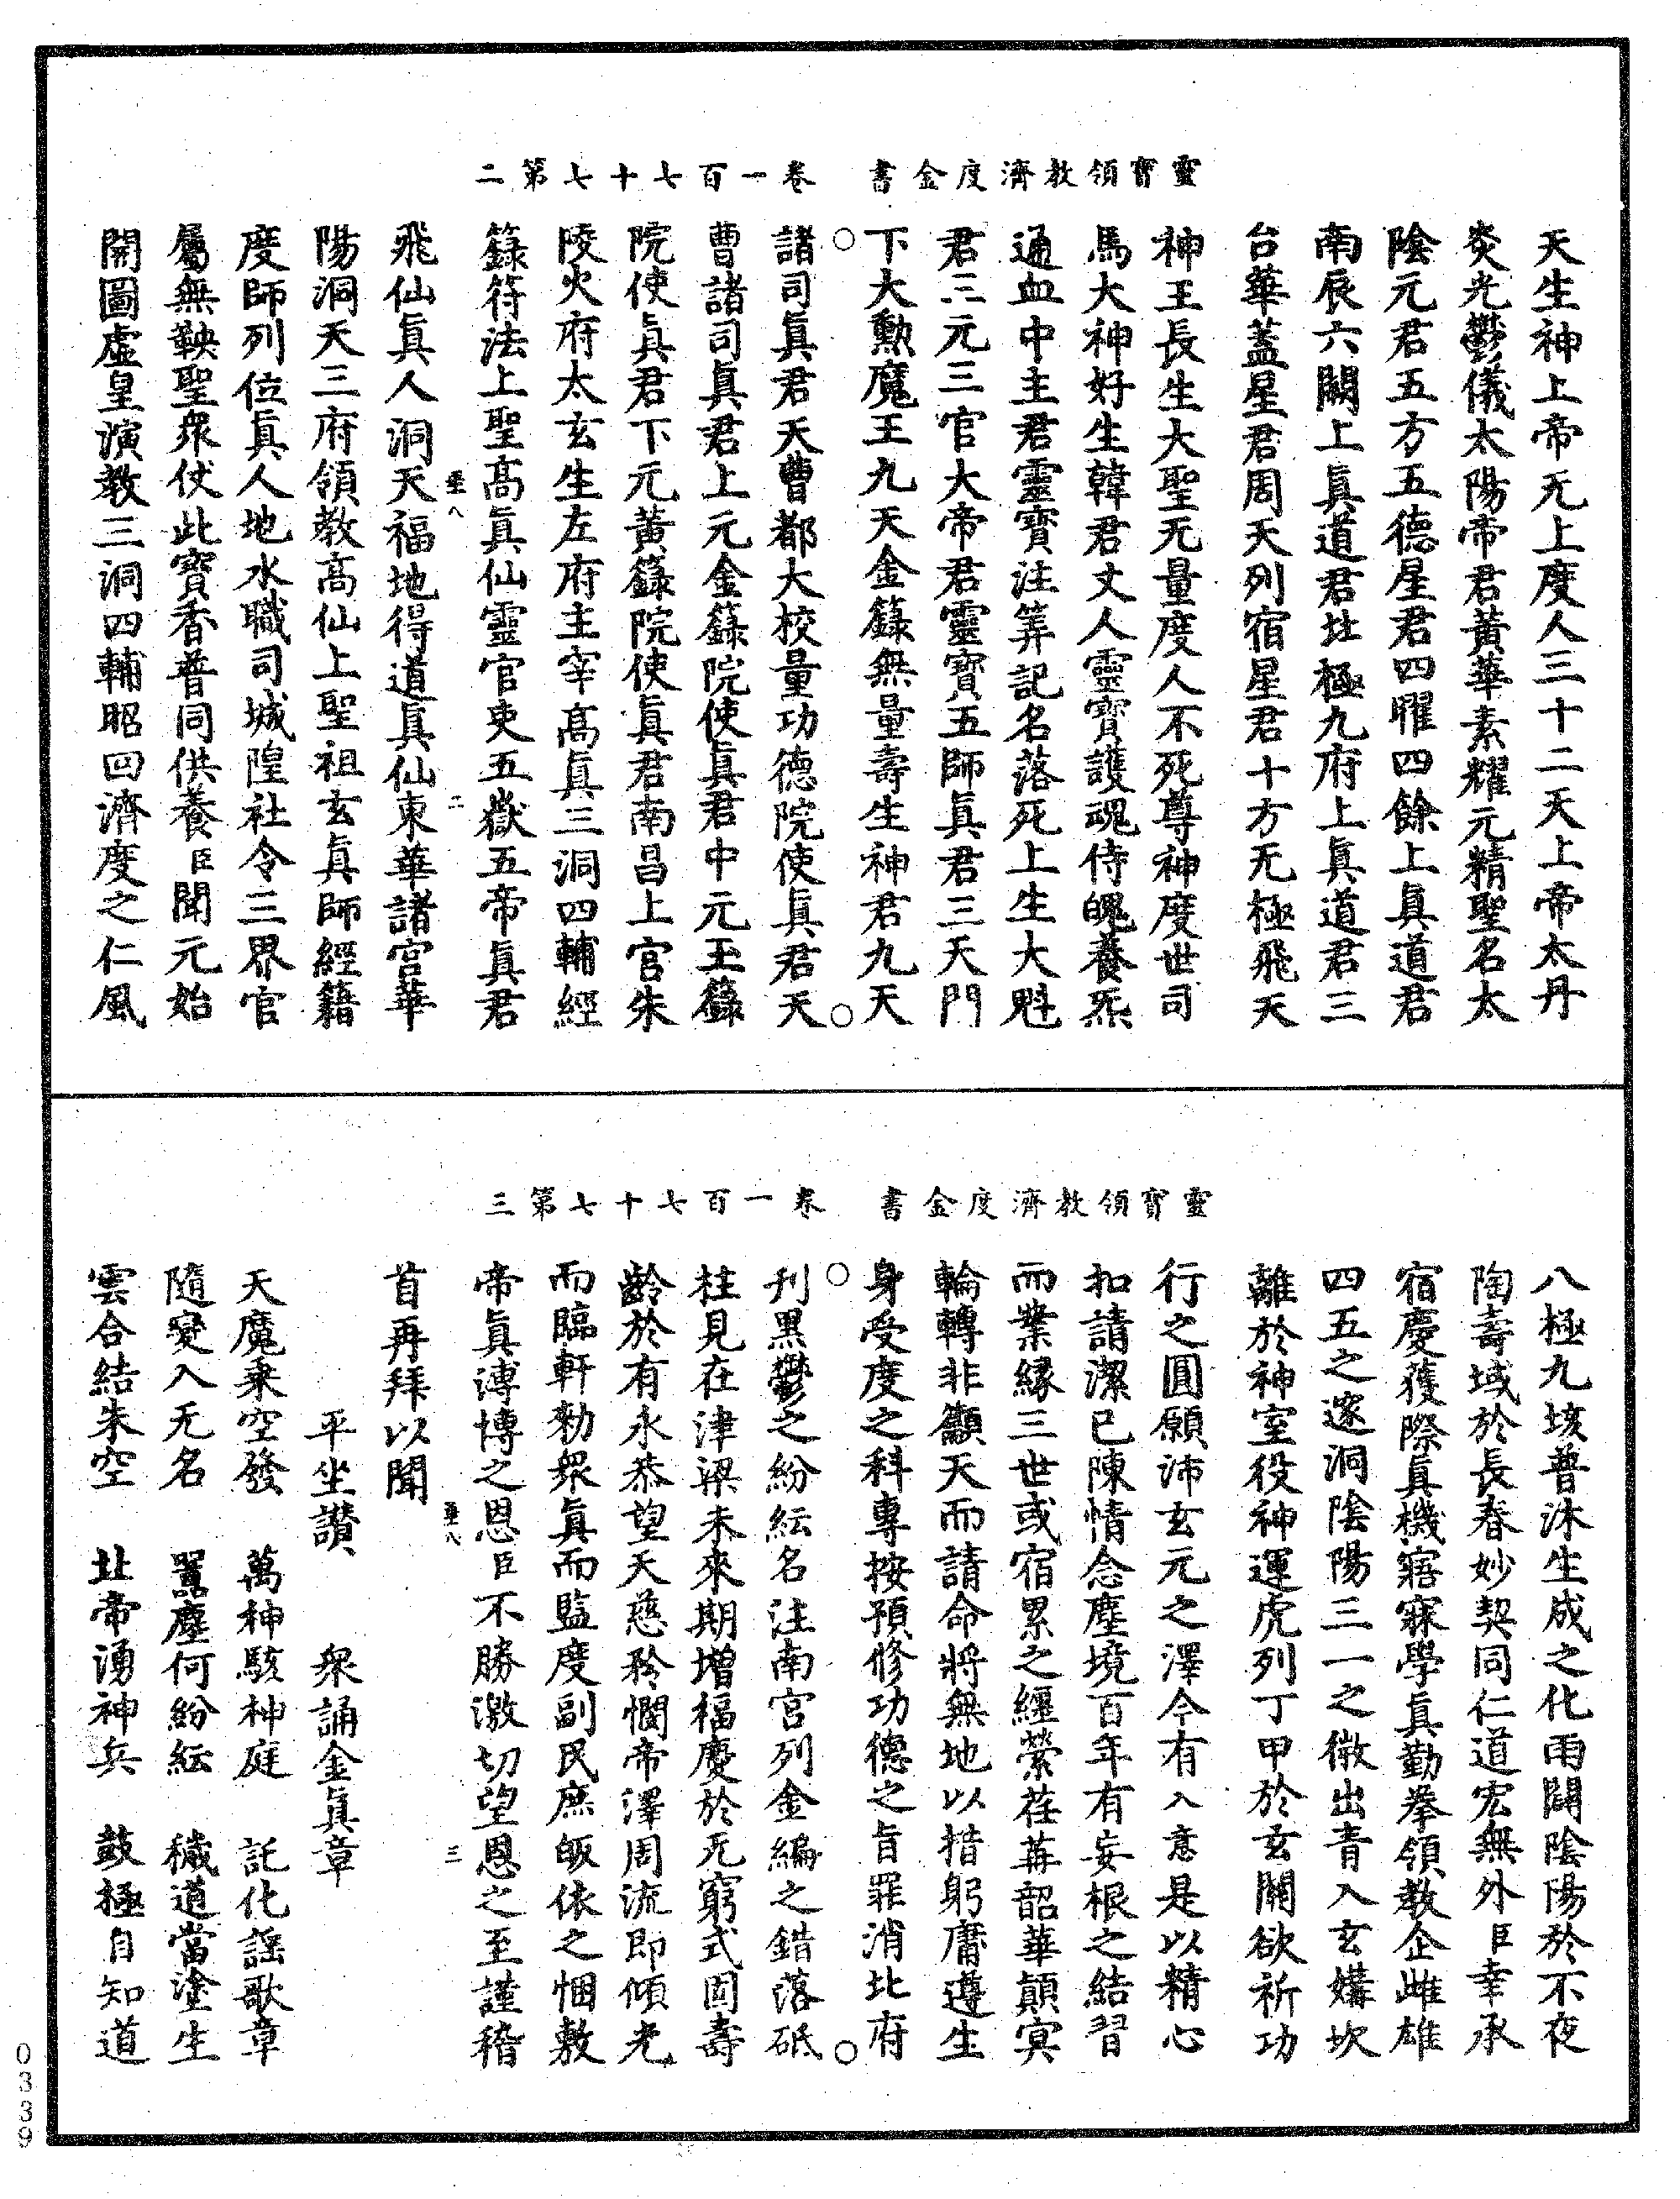 靈寶領教濟度金書　卷一百七十七第二
天生神上帝无上度人三十二天上帝太丹
炎光鬱儀太陽帝君黃華素耀元精聖名太
陰元君五方五德星君四曜四餘上真道君
南辰六闕上真道君北極九府上真道君三
台華蓋星君周天列宿星君十方无極飛天
神王長生大聖无量度人不死尊神度世司
馬大神好生韓君丈人靈寶護魂侍魄養炁
通血中主君靈寶注筭記名落死上生大魁
君三元三官大帝君靈寶五師真君三天門
下大勲魔王九天金籙無量壽生神君九天
諸司真君天曹都大校量功德院使真君天
曹諸司真君上元金籙院使真君中元玉籙
院使真君下元黃籙院使真君南昌上宮朱
陵火府太玄生左府主宰高真三洞四輔經
籙符法上聖高真仙靈官吏五嶽五帝真君
飛仙真人洞天福地得道真仙東華諸宮華
陽洞天三府領教高仙上聖祖玄真師經籍
度師列位真人地水職司城隍社令三界官
屬無鞅聖衆仗此寶香普同供養臣聞元始
開圖虛皇演教三洞四輔昭回濟度之仁風
靈寶領教濟度金書　卷一百七十七第三
八極九垓普沐生成之化雨闢陰陽於不夜
陶壽域於長春妙契同仁道宏無外臣幸承
宿慶獲際真機寤寐學真勤拳領教企雌雄
四五之邃洞陰陽三一之微出青入玄媾坎
離於神室役神運虎列丁甲於玄關欲祈功
行之圓願沛玄元之澤今有入意是以精心
扣請潔已陳情念塵境百年有妄根之結習
而業縁三世或宿累之纒縈荏苒韶華顛冥
輪轉非籲天而請命將無地以措躬庸遵生
身受度之科專按預修功德之旨罪消北府
刋黑鬱之紛紜名注南宮列金編之錯落砥
柱見在津梁未來期增福慶於无窮式固壽
齡於有永恭望天慈矜憫帝澤周流即傾光
而臨軒勑衆真而監度副民庶皈依之悃敷
帝真溥博之恩臣不勝激切望恩之至謹稽
首再拜以聞
平坐讃　衆誦金真章
天魔乘空發　萬神駭神庭　託化謡歌章
隨變入无名　囂塵何紛紜　穢道當塗生
雲合結朱空　北帝湧神兵　鼓極自知道
0339